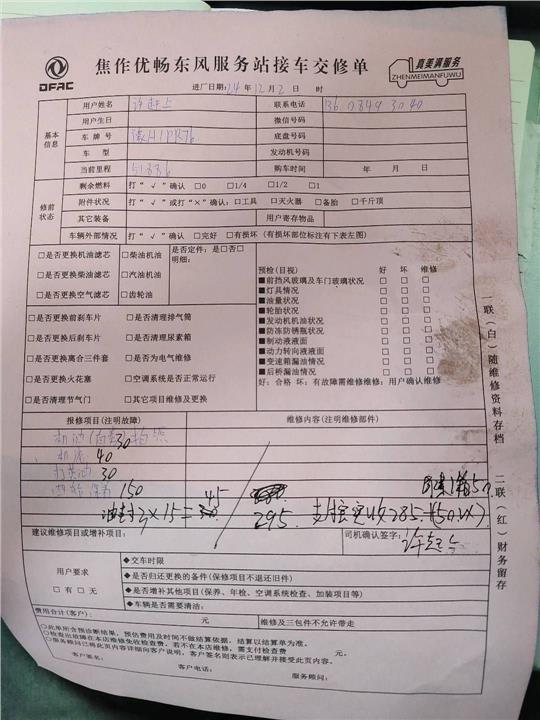 DFAC
焦作优畅东风服务站接车交修单
真美满服务
ZHENMEIMANFUWU
进厂日期: 24 年 12 月 2 日 时
基本信息
用户姓名 联系电话
用户生日 微信号码
车牌号 底盘号码
车型 发动机号码
当前里程 购车时间 年 月 日
修前状态
剩余燃料 打“√”确认 □0 □1/4 □1/2 □1
附件状况 打“√”或打“×”确认: □工具 □灭火器 □备胎 □千斤顶
其它装备 用户寄存物品
车辆外部情况 打“√”确认 □完好 □有损坏 (有损坏部位标注有下表左图)
□是否更换机油滤芯 □柴油机油 是否定件: 是□否□
明细:
□是否更换柴油滤芯 □汽油机油
□是否更换空气滤芯 □齿轮油
□是否更换前刹车片 □是否清理排气筒
□是否更换后刹车片 □是否清理尿素箱
□是否更换离合三件套 □是否为电气维修
□是否更换火花塞 □空调系统是否正常运行
□是否清理节气门 □其它项目维修及更换
预检(目视) 好 坏 维修
■前挡风玻璃及车门玻璃状况 □ □ □
■灯具情况 □ □ □
■油量状况 □ □ □
■轮胎状况 □ □ □
■发动机机油状况 □ □ □
■防冻防锈瓶状况 □ □ □
■制动液液面 □ □ □
■动力转向液液面 □ □ □
■变速箱漏油情况 □ □ □
■后桥漏油情况 □ □ □
好: 合格 坏: 有故障需维修维修: 用户确认维修
一联(白)随维修资料存档
二联(红)财务留存
报修项目(注明故障) 维修内容(注明维修部件)
30
40
30
150
×15= 45
295
285
建议维修项目或增补项目: 司机确认签字:
用户要求
□有 □无
◆交车时限
◆是否归还更换的备件(保修项目不退还旧件)
◆是否增补其他项目(保养、年检、空调系统检查、加装项目等)
◆车辆是否需要清洁:
费用合计(客户): 元 维修及三包件不允许带走
○此单所含预诊断结果, 预估费用及时间不做结算依据, 结算以结算单为准。
○检查出故障在本店维修免收检查费, 若不在本店维修, 需支付检查费 元。
○服务顾问已将此页内容详细向客户说明, 客户签名则表示已理解并接受此页内容。
客户签名: 客户电话: 服务顾问: